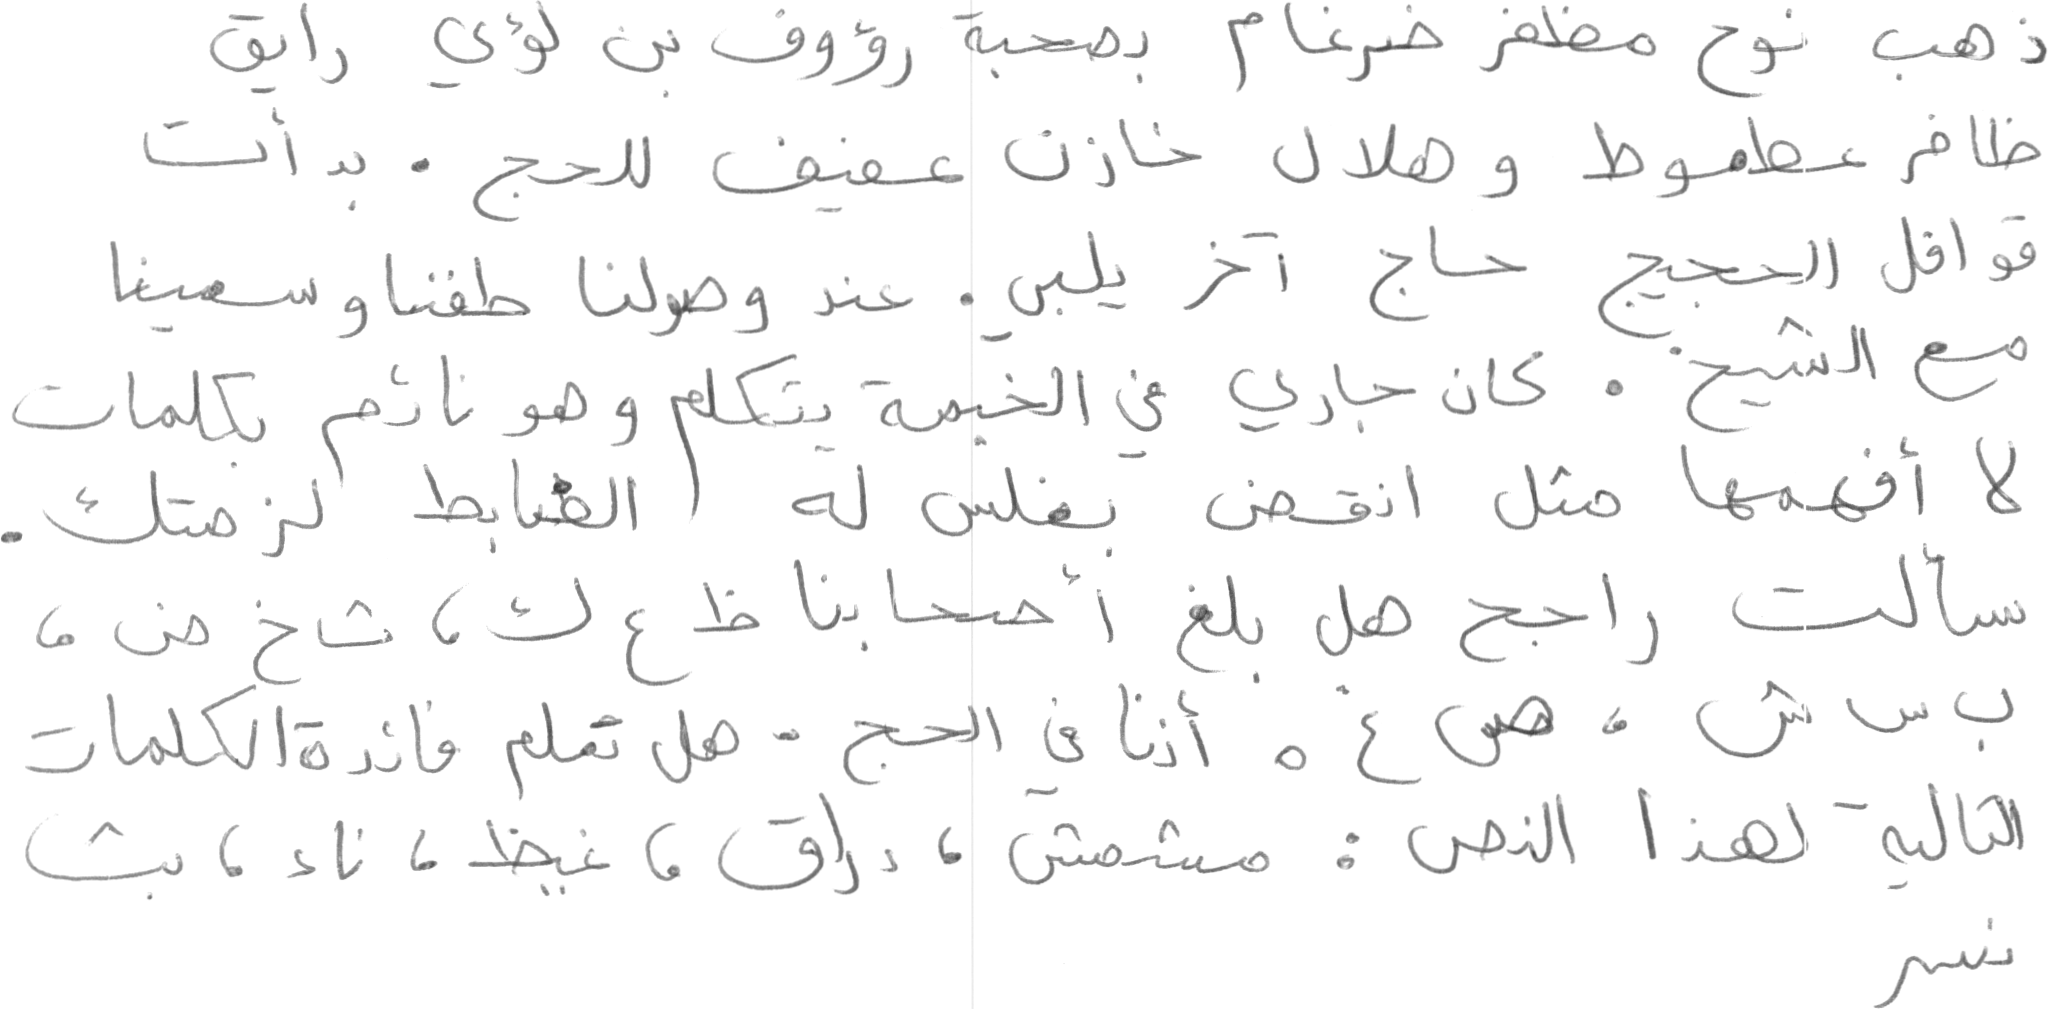 ذهب نوح مظفر ضرغام بصحبة رؤوف بن لؤي رايق
ظافر عطعوط و هلال خازن عفيف للحج . بدأت
قوافل الحجيج حاج آخر يلبي . عند وصولنا طفنا و سعينا
مع الشيخ . كان جاري في الخيمة يتكلم و هو نائم بكلمات
لا أفهمها مثل انقض بغلس له الضابط لزمتك .
سألت راجح هل بلغ أصحابنا ظ ع ك ، شاخ ض ،
ب س ش ، ص ع ه . أننا في الحج - هل تعلم فائدة الكلمات
التالية لهذا النص : مشمش ، دراق ، غيظ ، ناء ، بث
نسر